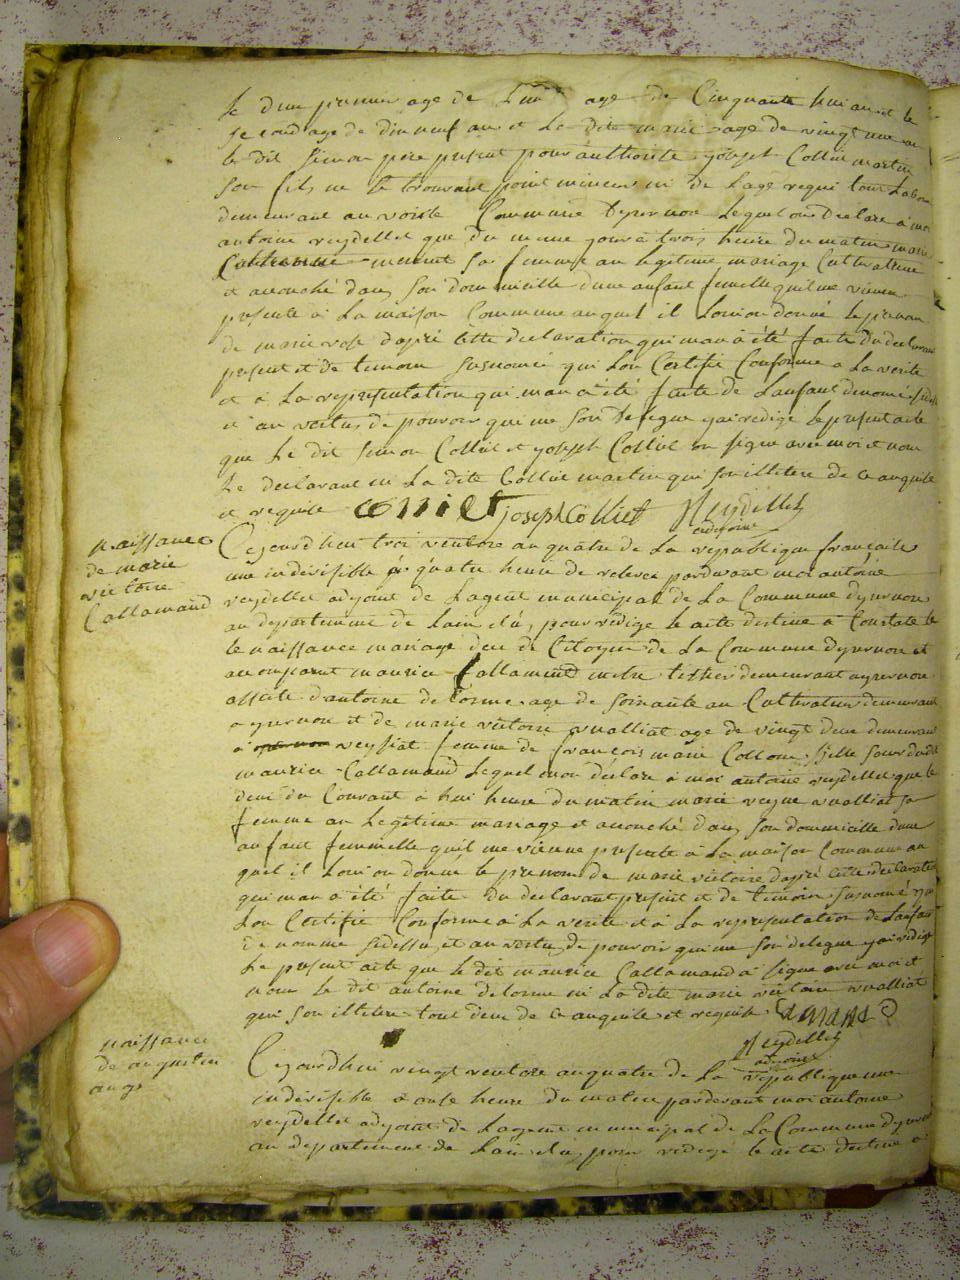 le dun premier age de age de Cinquante huit an et le
second age de dix neuf an et La dite marie age de vingt une an
le dit Simon père present pour authorite joseph Colliet martin
son fils ne se trouvant point mineur ni de Lage requi tous
demeurant au Commune Dyzernon Lequel on Declare a moi
antoine reydellet que du meme jour a trois heure du matin marie
menut sa femme an legitime mariage Cultivatrice
et acouché dans son dommicille dune anfant femelle quil me vienne
presente a La maison Commune auquel il Loui on donné le prenom
de marie rose dapré cette declaration qui man a été faite du declarant
present et de temoin susnomé qui Lon Certifié Conforme a La verité
et a La representation qui man a été faite de Lanfant denomé sidessu
et an vertu de pouvoir qui me son delegue jai redigé le present acte
que Le dit Simon Colliet et joseph Colliet on signe avec moi et non
Le declarant ni La dite Colliet martin qui son illitere de ce anquite
et requite Colliet joseph Colliet Reydellet
adjoint
naissance
de marie
victoire
Callamand
Cejourdhui troi ventose an quatre de La republique française
une indivisible a quatre heure de relevee pardevant moi antoine
reydellet adjoint de Lagent municipal de La Commune dyzernore
au departemens de Lain élu, pour redigé le acte destine a Constate le
le naissance mariage dece de Citoyen de La Commune dyzernon et
an comparut maurice Callamand demeurant ayzernon
assiste dantoine delorme age de soixante an Cultivateur demeurant
a yzernon et de marie victoire vualliat age de vingt deux demeurant
a veyziat femme de françois marie Collom
maurice Callamand Lequel on declare a moi antoine reydellet que le
deux du Courant a hui heure du matin marie vualliat sa
femme an Legitime mariage et acouché dans son dommicille dune
anfant femmelle quil me vienne presente a La maison Commune au
quel il Loui on donné le prenom de marie victoire dapré cette declaration
qui man a été faite du declarant present et de temoin susnomé qui
Lon Certifié Conforme a La verité et a La representation de Lanfan
denommé sidessu et an vertu de pouvoir qui me son delegue jai redigé
Le present acte que le dit maurice Callamand a signe avec moi et
non le dit antoine delorme ni La dite marie victoire vualliat
qui son illitere tout deux de ce anquite et requite
Reydellet
adjoint
naissance
de augustin
ange
Cejourdhui vingt ventose an quatre de La republique une
indivisible a onse heure du matin pardevant moi antoine
reydellet adjoint de Lagent municipal de La Commune dyzernore
au departemens de Lain élu, pour redigé le acte destine a